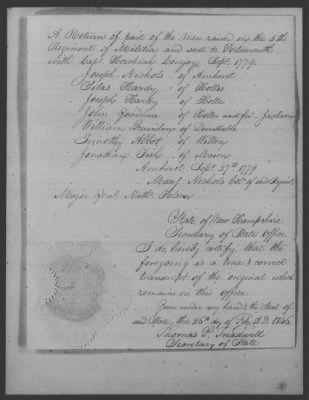 A Return of part of the Men raised in the 5th
Regiment of Militia and sent to Portsmouth
with Capt. Hezekiah Lovejoy Sept. 1779.
Joseph Nichols of Amherst
Silas Hardy of Hollis
Joseph Hardy of Hollis
John Goodhue of Hollis and for
William Dunthony of Dunstable
Timothy Abbot of Wilton
Jonathan Fish of Mason
Amherst Sept. 27th 1779
Mos. Nichols Col. of said Regimt.
Major Genl. Nathl. Folsom
State of New Hampshire
Secretary of State's Office.
I do hereby certify that the
foregoing is a true & correct
transcript of the original which
remains in this office.
Given under my hand & the Seal of
said State, this 26th day of Feby. A.D. 1846.
Thomas P. Treadwell
Secretary of State